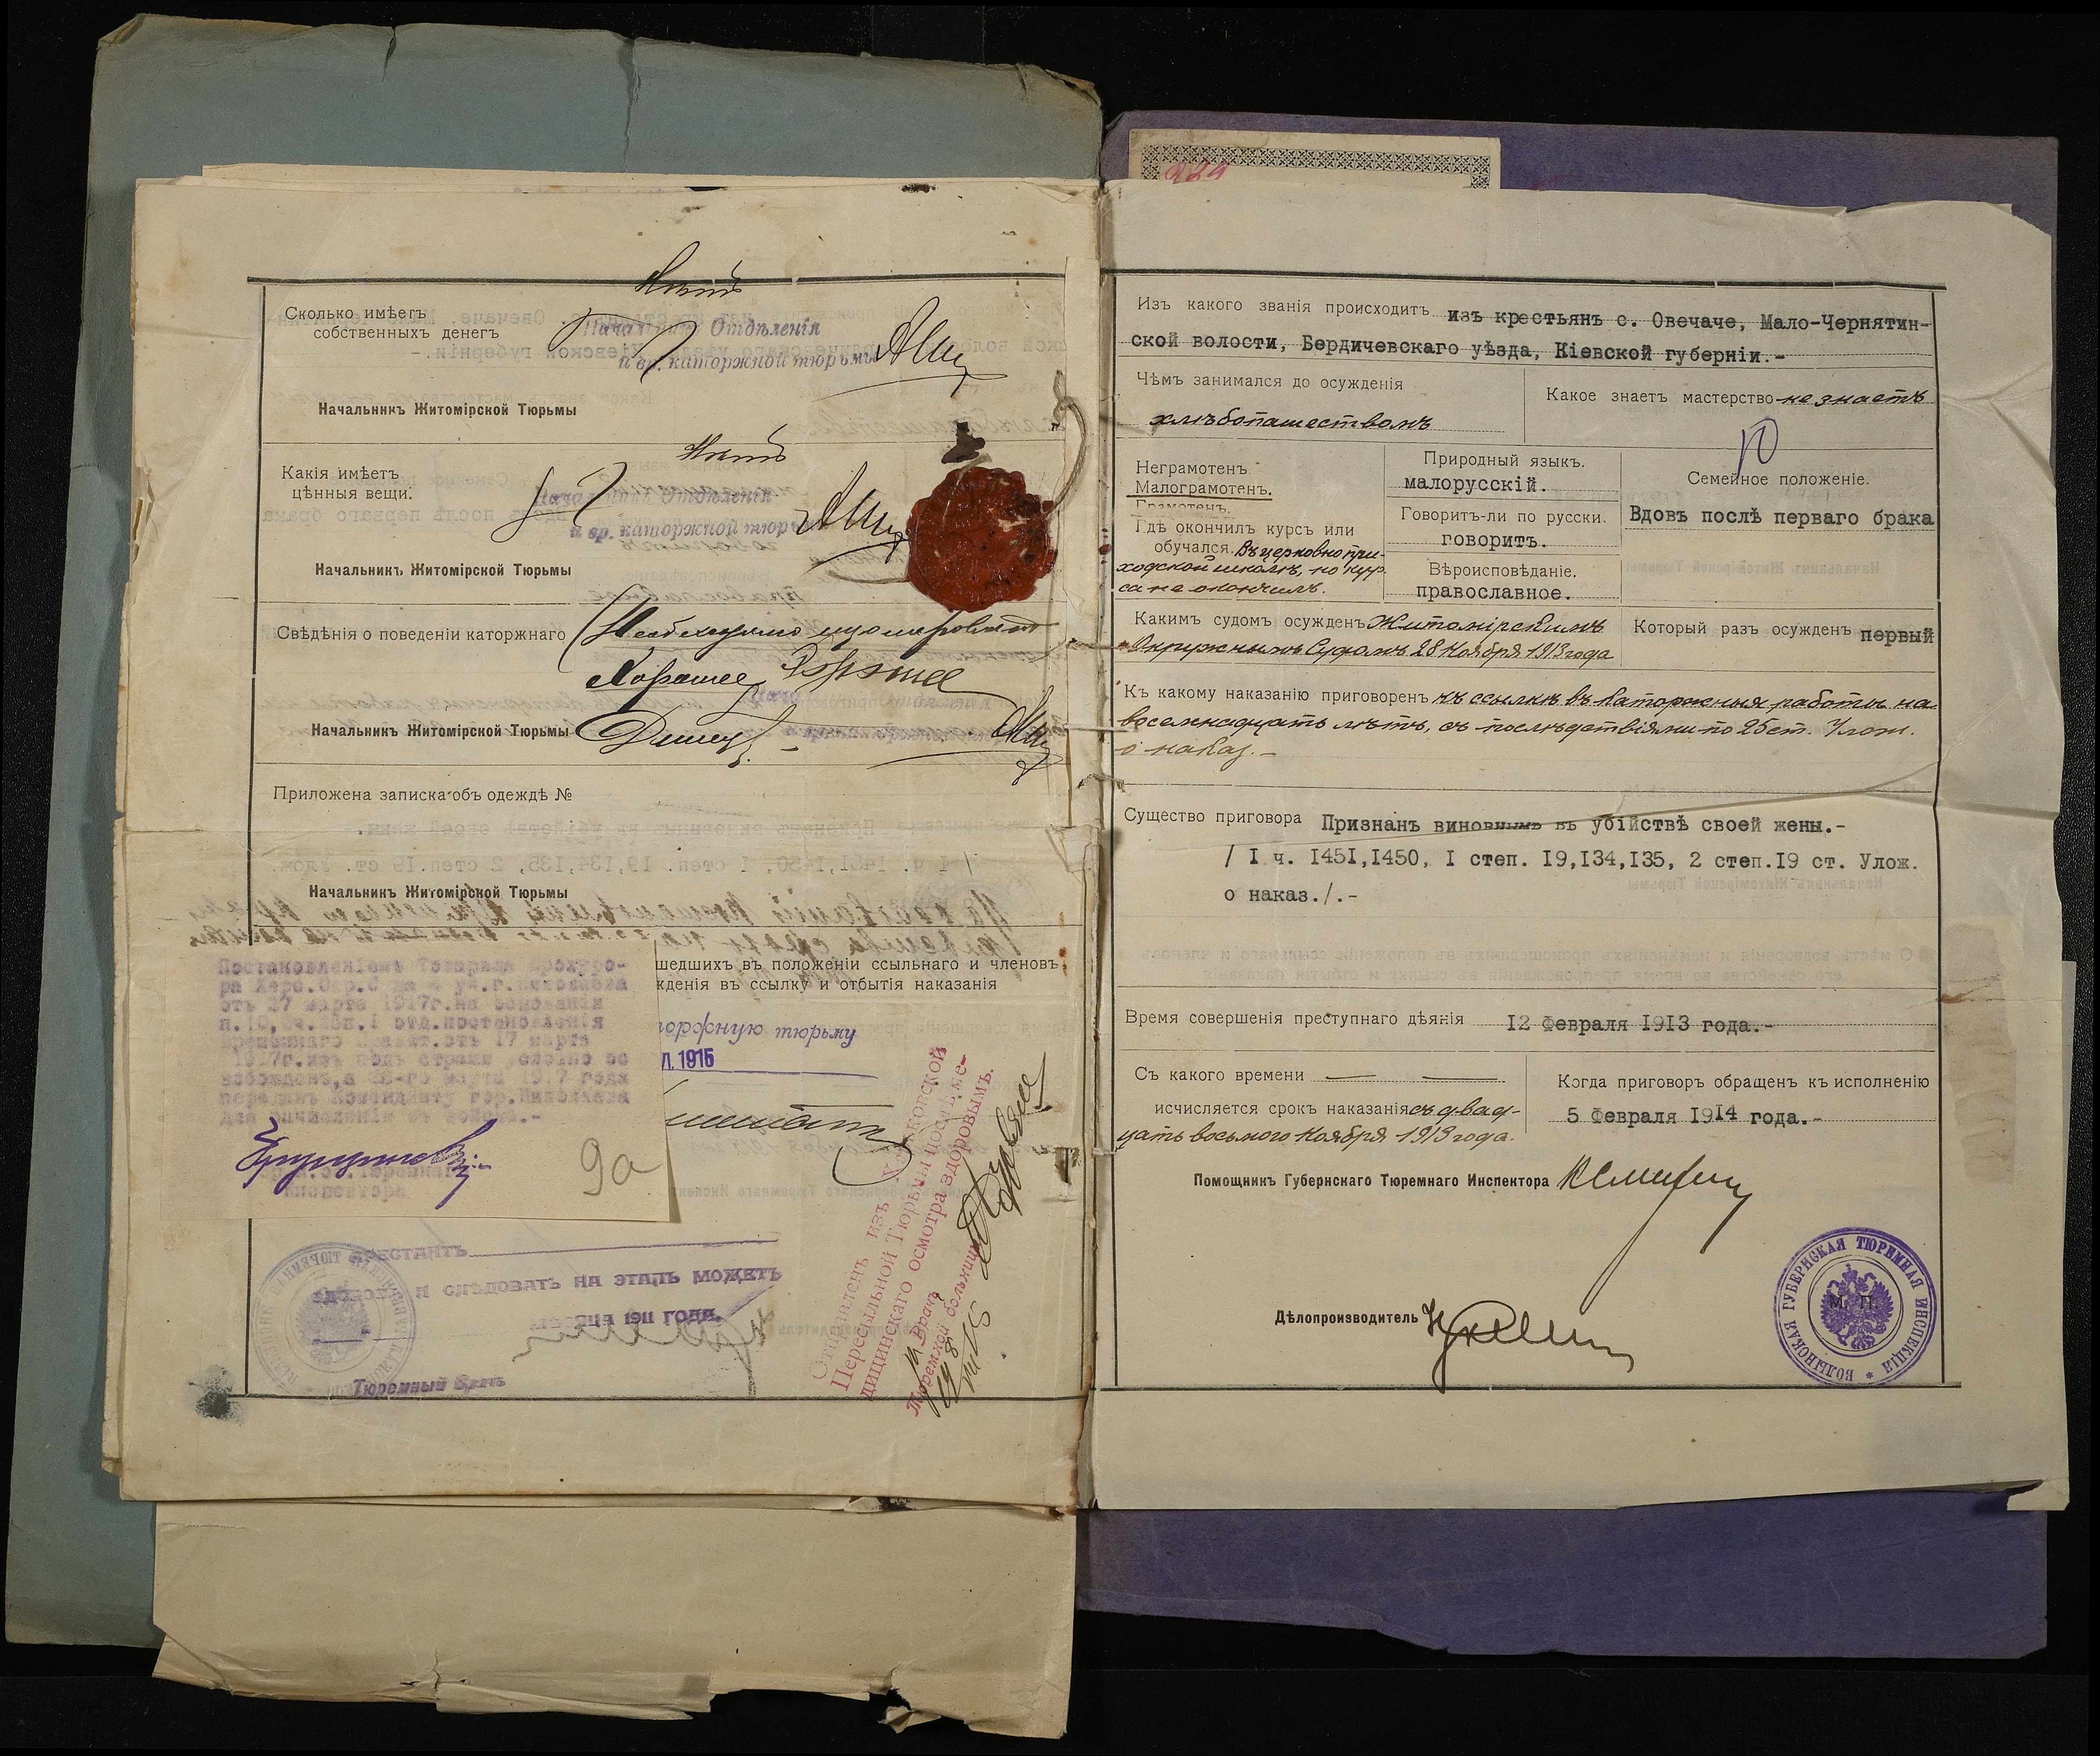 Сколько имѣетъ
собственныхъ денегъ
Нѣтъ
Начальникъ Отдѣленія
и вр. каторжной тюрьмы
Начальникъ Житомірской Тюрьмы
Какія имѣетъ
цѣнныя вещи:
Нѣтъ
Начальникъ Отдѣленія
и вр. каторжной тюрьмы
Начальникъ Житомірской Тюрьмы
Свѣдѣнія о поведеніи каторжнаго
Хорошее
Начальникъ Житомірской Тюрьмы
Приложена записка объ одеждѣ №
Начальникъ Житомірской Тюрьмы
шедшихъ въ положеніи ссыльнаго и членовъ
жденія въ ссылку и отбытія наказанія
Постановленіемъ Товарища Прокуро-
ра Херс.Окр.С да 4 уч.г.Николаева
отъ 27 марта 1917г.на основаніи
п. отд.постановленія
Временнаго Правит.отъ 17 марта
1917г.изъ подъ стражи условно ос
вобожденъ,а 28-го марта 1917 года
переданъ Коменданту гор.Николаева
для зачисленія въ войска.-
Тюремнаго
Инспектора
9а
торжную тюрьму
1915
АРЕСТАНТЪ
ЗДОРОВЪ И СЛѢДОВАТЬ НА ЭТАПЪ МОЖЕТЪ
МѢСЯЦА 1911 ГОДА.
Тюремный Врачъ
Отправленъ изъ Харьковской
Пересыльной Тюрьмы послѣ ме-
дицинскаго осмотра здоровымъ.
Врачъ
Тюремной больницы
229
Изъ какого званія происходитъ изъ крестьянъ с. Овечаче, Мало-Чернятин-
ской волости, Бердичевскаго уѣзда, Кіевской губерніи.-
Чѣмъ занимался до осужденія
хлѣбопашествомъ
Какое знаетъ мастерство не знаетъ
10
Неграмотенъ.
Малограмотенъ.
Грамотенъ.
Гдѣ окончилъ курсъ или
обучался. Въ церковно при-
ходской школѣ, но кур-
са не окончилъ.
Природный языкъ.
малорусскій.
Говоритъ-ли по русски.
говоритъ.
Вѣроисповѣданіе.
православное.
Семейное положеніе.
Вдовъ послѣ перваго брака
Какимъ судомъ осужденъ Житомірскимъ
Окружнымъ Судомъ 28 Ноября 1913 года
Который разъ осужденъ первый
Къ какому наказанію приговоренъ къ ссылкѣ въ каторжныя работы на
восемнадцать лѣтъ, съ послѣдствіями по 25 ст. Улож.
о наказ.-
Существо приговора Признанъ виновнымъ въ убійствѣ своей жены.-
/ I ч. I45I,I450, I степ. I9,I34,I35, 2 степ.I9 ст. Улож.
о наказ./.-
Время совершенія преступнаго дѣянія I2 Февраля I9I3 года.-
Съ какого времени
исчисляется срокъ наказанія съ двад-
цать восьмого Ноября 1913 года.
Когда приговоръ обращенъ къ исполненію
5 Февраля I9I4 года.-
Помощникъ Губернскаго Тюремнаго Инспектора
Дѣлопроизводитель
ВОЛЫНСКАЯ ГУБЕРНСКАЯ ТЮРЕМНАЯ ИНСПЕКЦІЯ
М. П.